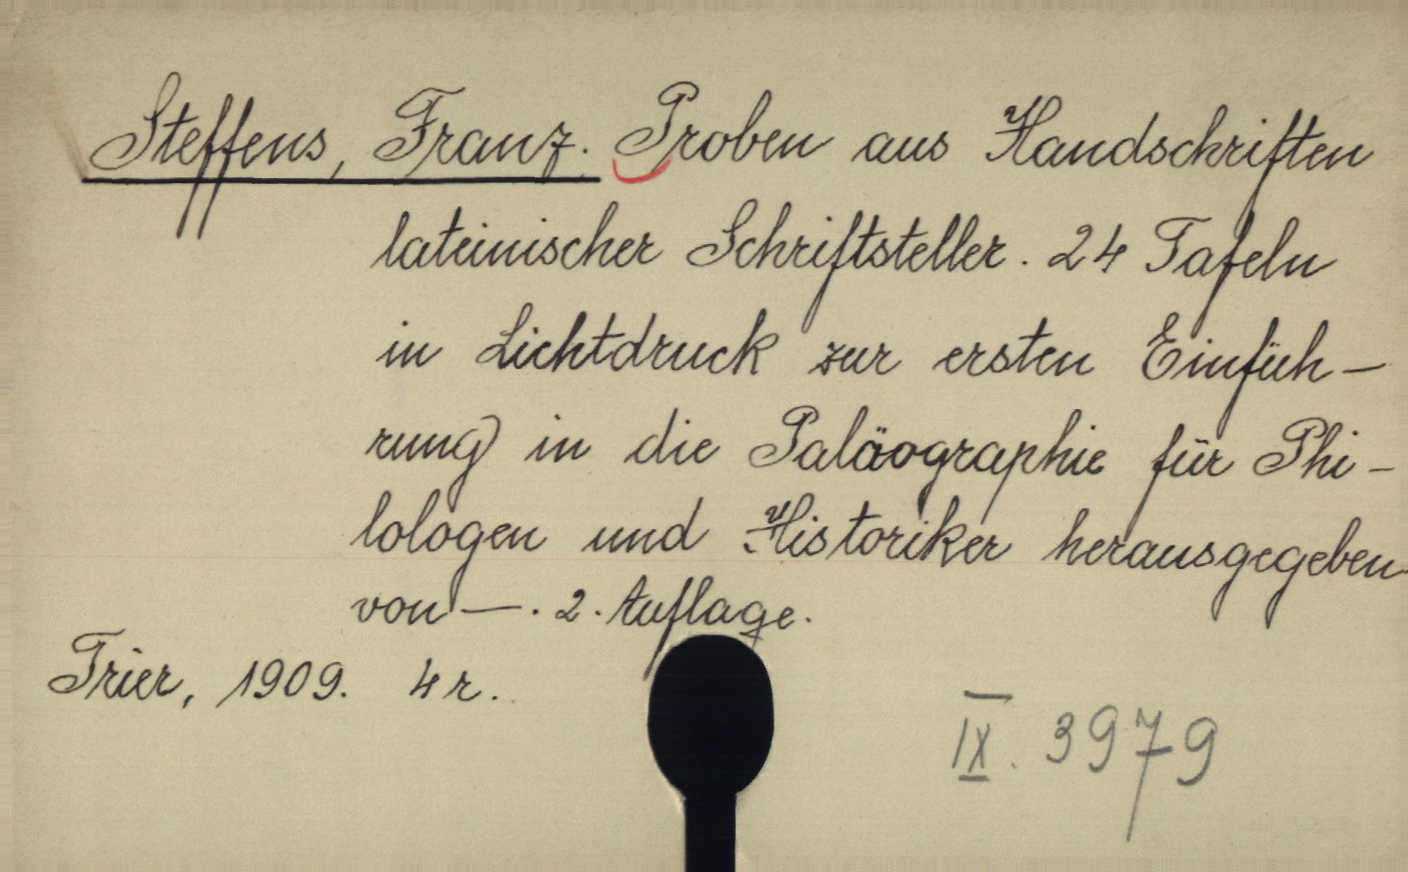 Steffens, Franz. Proben aus Handschriften
lateinischer Schriftsteller. 24 Tafeln
in Lichtdruck zur ersten Einfüh-
rung in die Paläographie für Phi-
lologen und Historiker herausgegeben
von —. 2. Auflage.
Trier, 1909. 4r.
IX. 3979